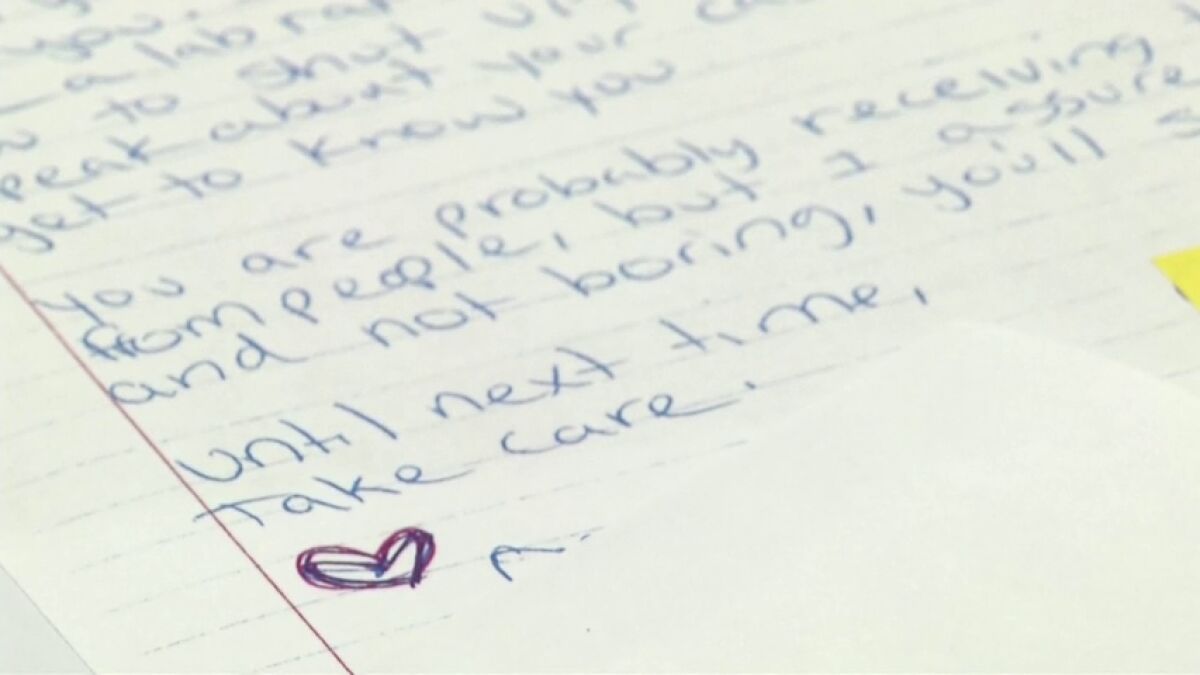 you.
a lab rat
to shut up
speak about your
get to know you
You are probably receiving
from people, but I assure
and not boring, you'll
Until next time,
Take care.